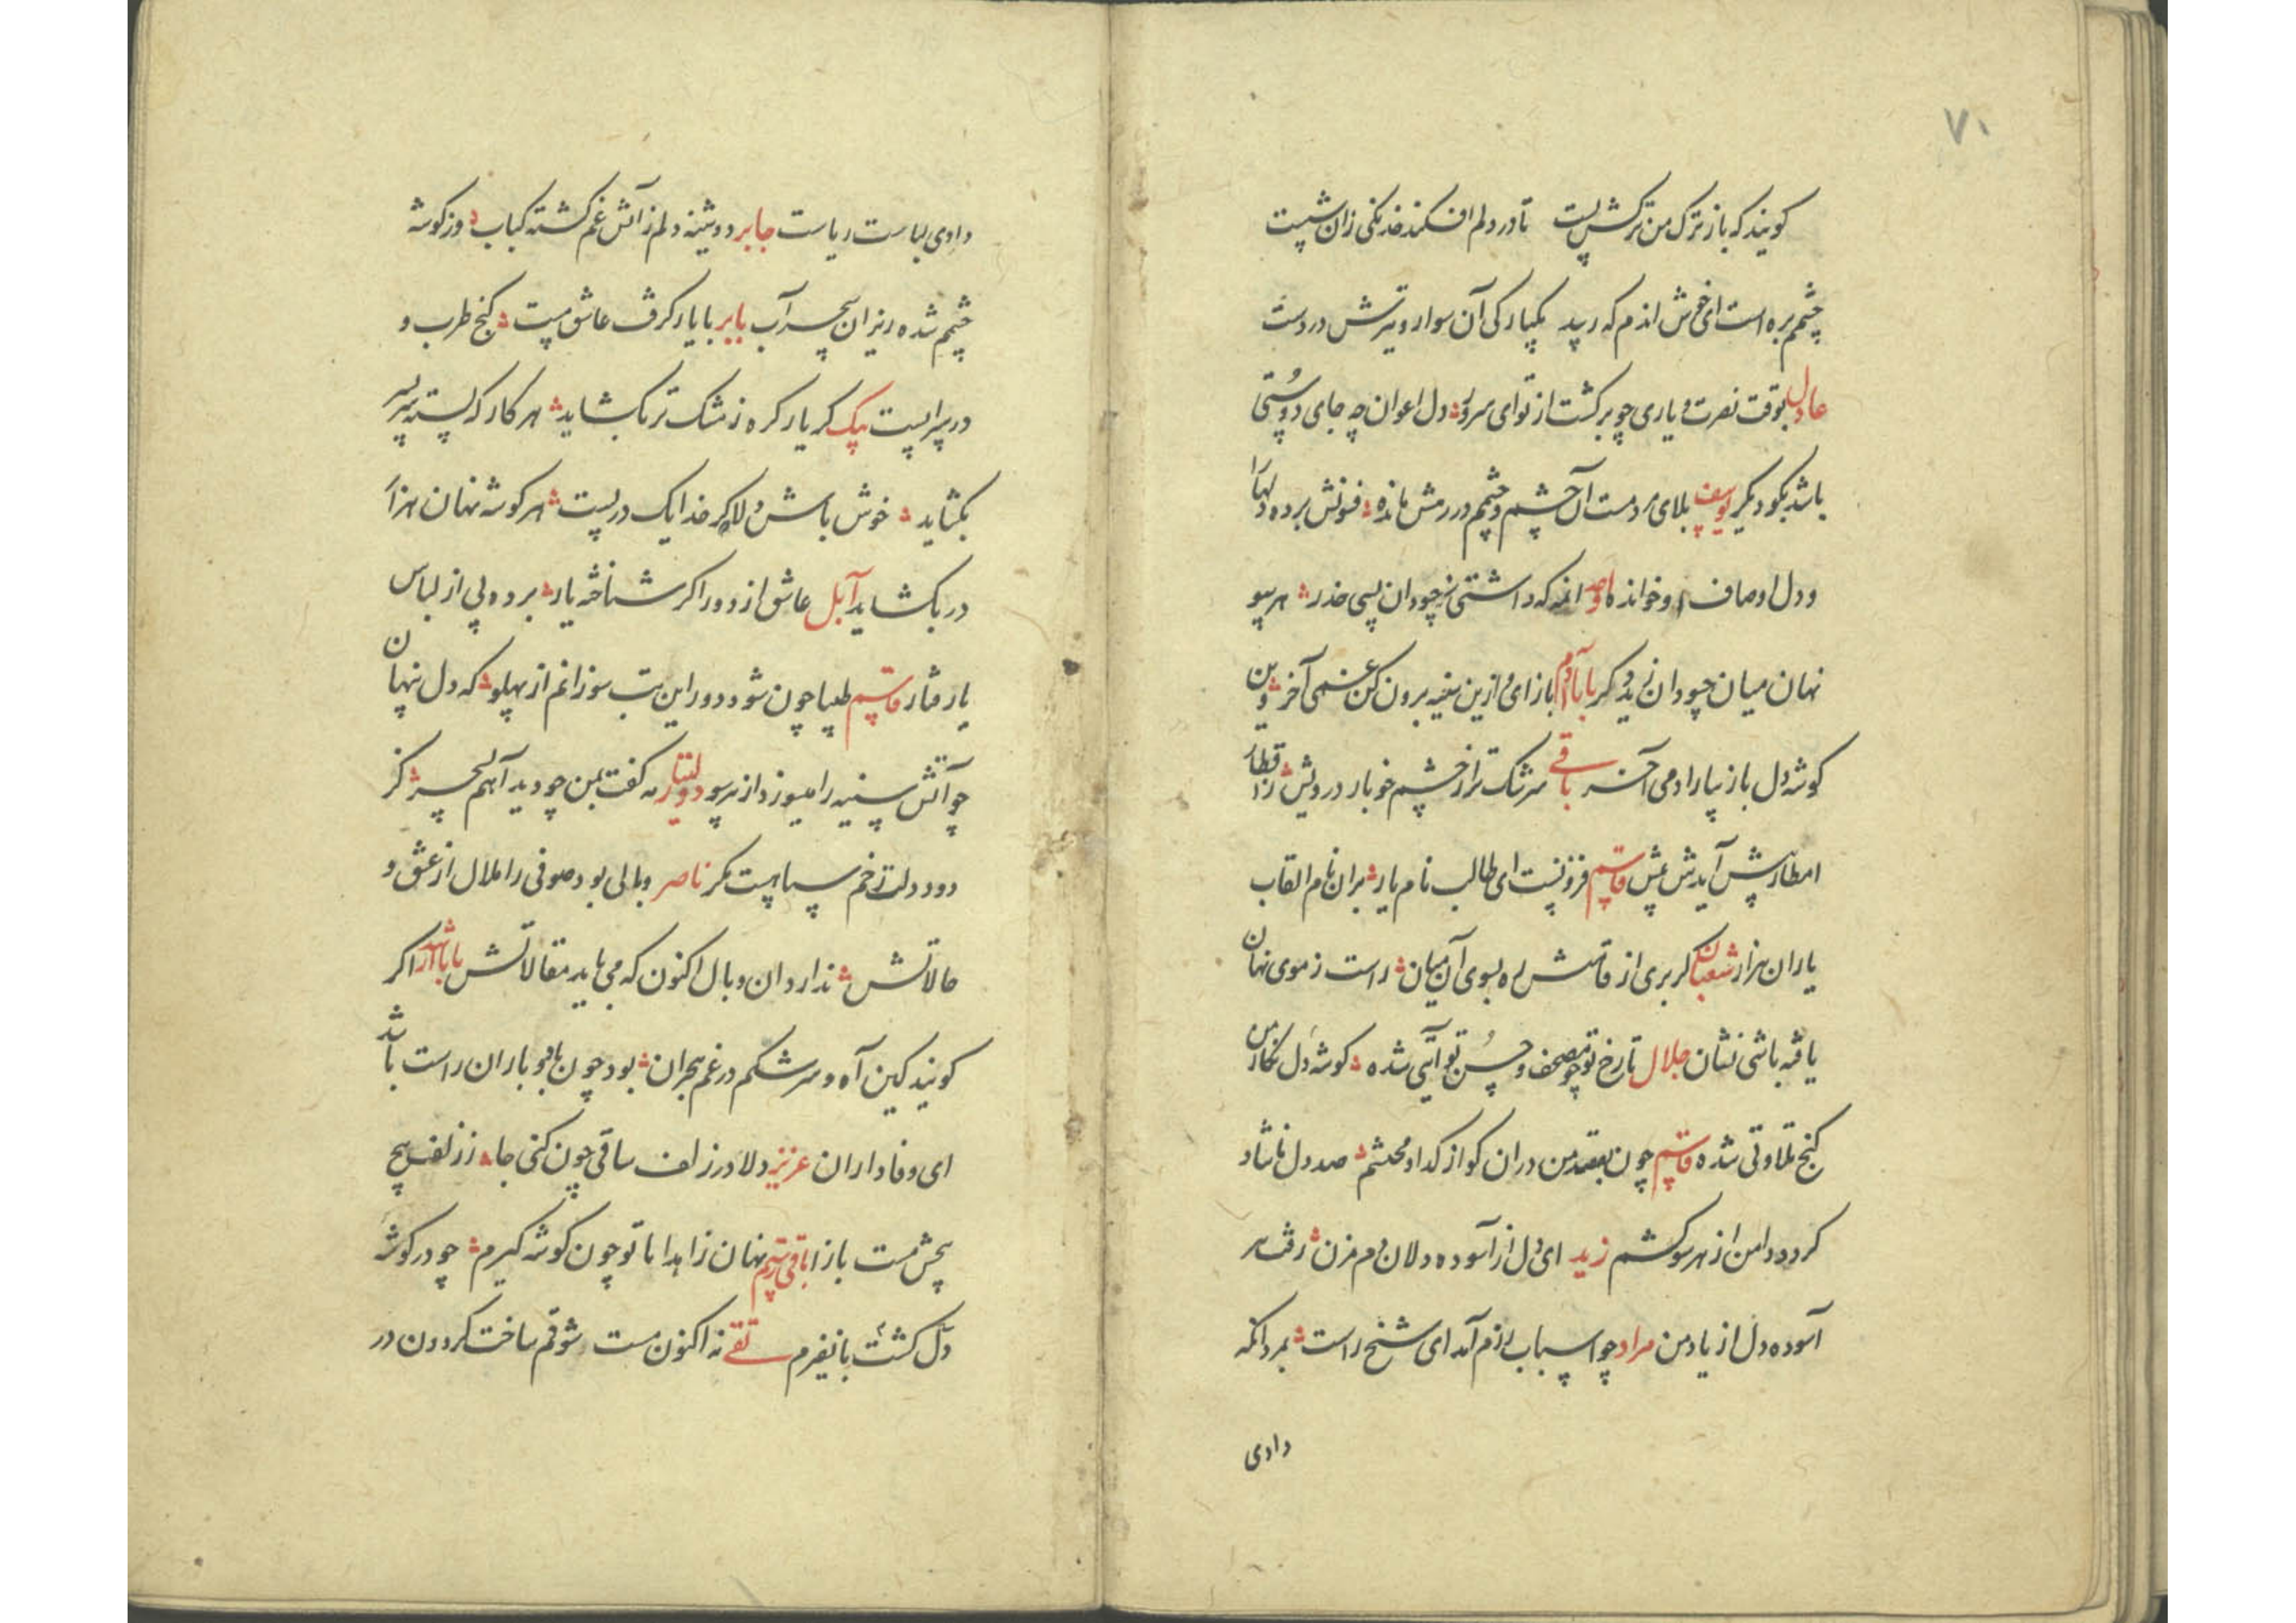 ۷۱
کویند که باز ترک من ترکش بست تا در دلم افکند خدنکی زان شست
چشمم بره است ای خوش اندم که رسد یکبارکی آن سوار و تیرش در دست
عادل بوقت نصرت و یاری چو برکشت از تو ای سرور دل اعوان چه جای دوستی
باشد بکو دیکر یوسف بلای مردمست آن چشم و چشمم در رمش مانده فنونش برده دلها
و دل اوصاف او خوانده انمه که داشتی نه چو دان بسی حذر هر سو
نهان میان چو دان زید دکر بابا آدم باز ای و ازین سفینه برون کن غمی آخر وین
کوشه دل باز بیارا دمی آخر باقی سرشک تر از چشم خونبار درویش از قطار
امطار پیش آیدش عیش قاسم فزونست ای طالب نام یار بران نام القاب
یاران هزار شعبان کر بری از قامتش ره بسوی آن میان راست ز موی نهان
یافته باشی نشان جلال تا رخ تو چو مصحف و حسن تو آیتی شده کوشه دل نکار من
کنج تلاوتی شده قاسم چون بقصد من دران کو از کدا و محتشم صد دل ناشاد
کرد و دامن از هر سو کشم زید ای دل از آسوده دلان دم مزن رفت سر
آسوده دل از یاد من مراد چو اسباب رزم آمد ای شیخ راست بمردانکه
دادی
دادی لباست ریاست جابر دوشینه دلم ز آتش غم کشته کباب وز کوشه
چشم شده ریزان بسحر آب بابر با یار کرفت عاشق مست کنج طرب و
در سرابست بیک کر یار کره ز مشک تر بکشاید هر کار که بسته سر بسر
بکشاید خوش باش دلا کر خدا یک در بست هر کوشه نهان هزار
در بکشاید آبل عاشق از دور اکر شناخته یار برده پی از لباس
یار فتار قاسم طبیبا چون شود دور این تب سوزانم از پهلو که دل پنهان
چو آتش سینه را میسوزد از هر سو دولتیار مه کفت بمن چو دید آهم بسحر کز
دود دلت زخم سیاهست مکر ناصر وبالی بود صوفی را ملال از عشق و
حالاتش ندارد ان وبال اکنون که می باید مقالاتش بابا شهر آرا کر
کویند کین آه و سرشکم در غم هجران بود چون باد و باران راست باشد
ای وفاداران عزیز دلا در زلف ساقی چون کنی جا ز زلفش پیچ
پیچش مست باز ا باقی رستم نهان زاهدا با تو چون کوشه کیرم چو در کوشه
دل کشت بانفیرم تقی نه اکنون مست شوقم ساخت کردون در